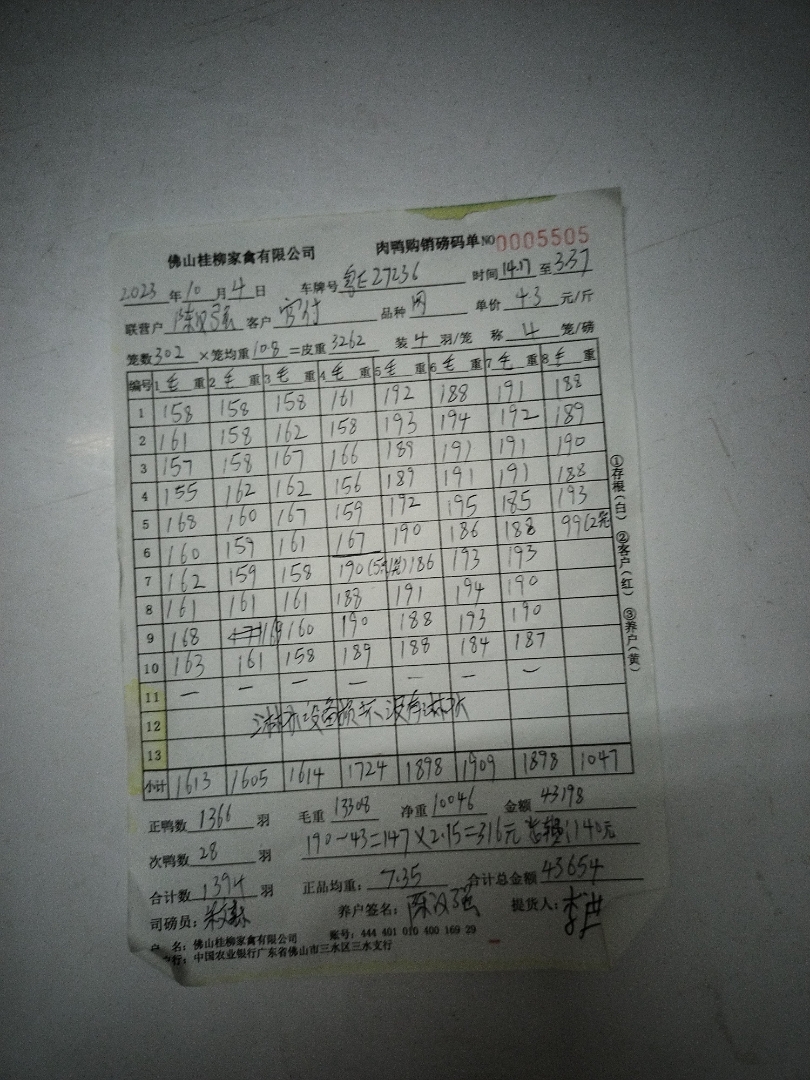 佛山桂柳家禽有限公司 肉鸭购销磅码单 NO 0005505
2023年10月4日 车牌号 E27236 时间 14.17 至 3.37
联营户 陈汉强 客户 品种 单价 4.3 元/斤
笼数 302 ×笼均重 10.8 =皮重 3262 装 4 羽/笼 称 4 笼/磅
编号 1 毛重 2 毛重 3 毛重 4 毛重 5 毛重 6 毛重 7 毛重 8 毛重
1 158 158 158 161 192 188 191 188
2 161 158 162 158 193 194 192 189
3 157 158 167 166 189 191 191 190
4 155 162 162 156 189 191 191 188
5 168 160 167 159 192 195 185 193
6 160 159 161 167 190 186 188 99(2笼
7 162 159 158 190 186 193 193
8 161 161 161 188 191 194 190
9 168 169 160 190 188 193 190
10 163 161 158 189 188 184 187
11 — — — — — — —
12 淋水设备损坏 没有淋水
13
小计 1613 1605 1614 1724 1898 1909 1898 1047
正鸭数 1366 羽 毛重 13308 净重 10046 金额 43198
190-43=147×2.15=316元 140元
次鸭数 28 羽
合计数 1394 羽 正品均重: 7.35 合计总金额 43654
司磅员: 养户签名: 陈汉强 提货人:
户 名: 佛山桂柳家禽有限公司 账号: 444 401 010 400 169 29
行: 中国农业银行广东省佛山市三水区三水支行
①存根(白) ②客户(红) ③养户(黄)